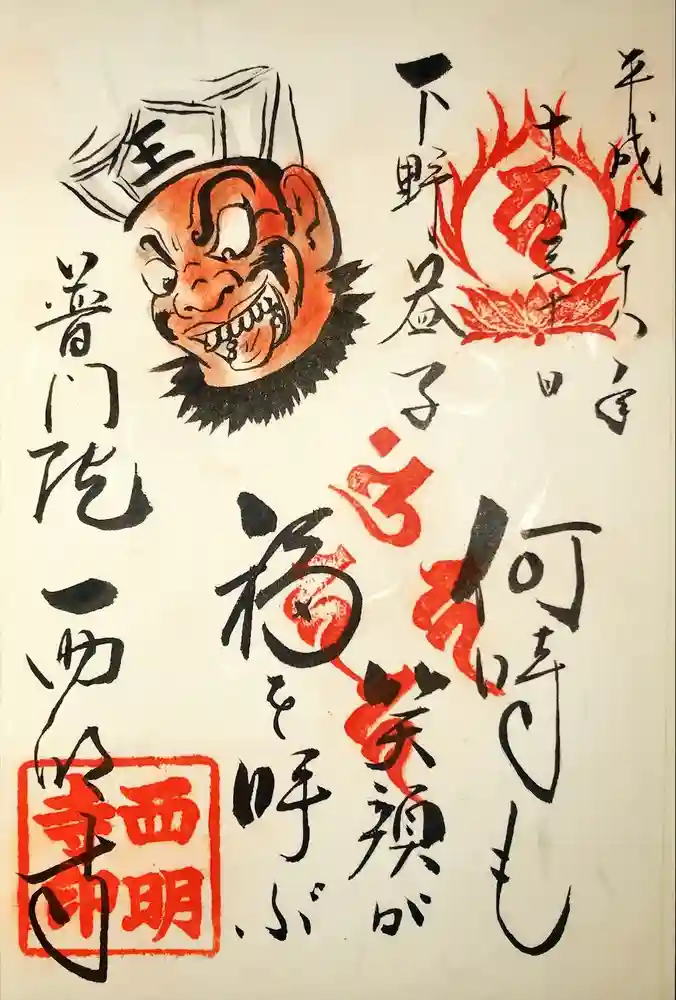 平成二十八年
十一月三十日
下野 益子
何時も
笑顔が
福を呼ぶ
王
普門院 西明寺
西明
寺印